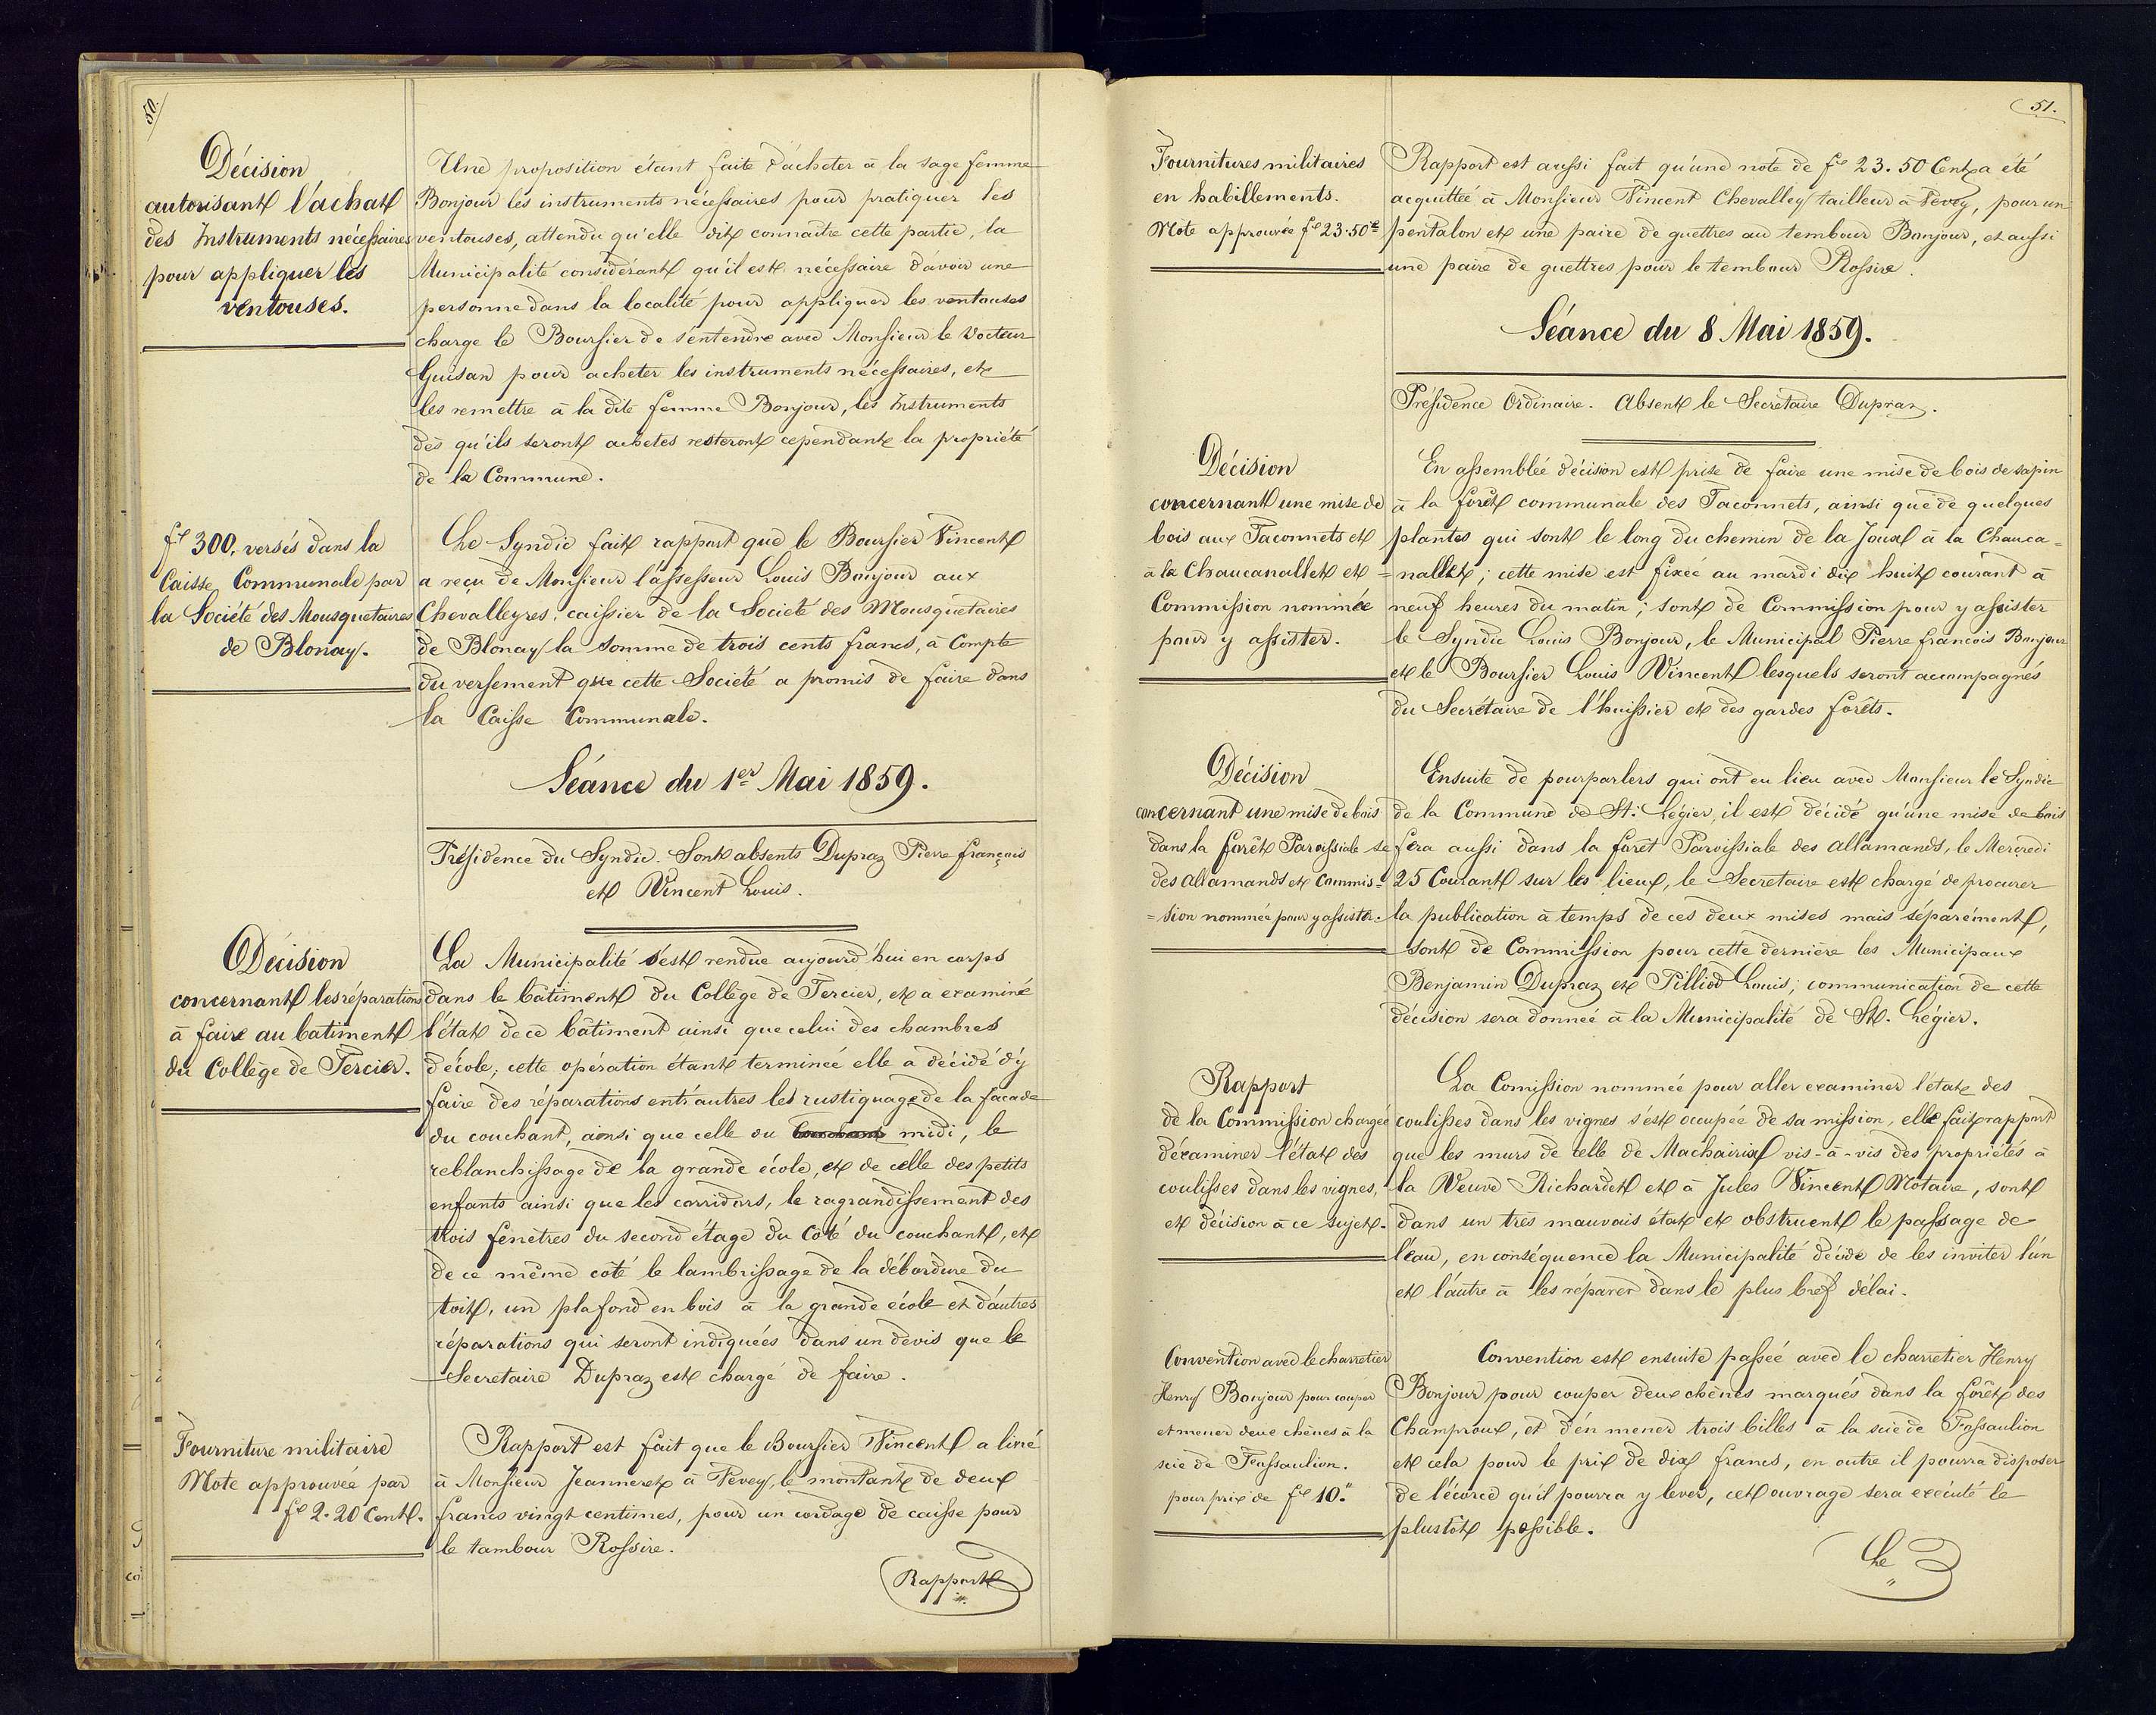 50.
Décision
autorisant l'achat
des Instruments nécessaires
pour appliquer les
ventouses.
Une proposition étant faite d'acheter à la sage femme
Bonjour les instruments nécessaires pour pratiquer les
ventouses, attendu qu'elle dit connaitre cette partie, la
Municipalité considérant qu'il est nécessaire d'avoir une
personne dans la localité pour appliquer les ventouses
charge le Boursier de s'entendre avec Monsieur le Docteur
Guisan pour acheter les instruments nécessaires, et
les remettre à la dite femme Bonjour, les Instruments
dès qu'ils seront achetés resteront cependant la propriété
de la Commune.
fs 300, versés dans la
Caisse Communale par
la Société des Mousquetaires
de Blonay.
Le Syndic fait rapport que le Boursier Vincent
a reçu de Monsieur l'assesseur Louis Bonjour aux
Chevalleyres, caissier de la Société des Mousquetaires
de Blonay la somme de trois cents francs, à Compte
du versement que cette Société a promis de faire dans
la Caisse Communale.
Séance du 1er Mai 1859.
Présidence du Syndic. Sont absents Dupraz Pierre françois
et Vincent Louis.
Décision
concernant les réparations
à faire au batiment
du Collège de Tercier.
La Municipalité s'est rendue aujourd'hui en corps
dans le bâtiment du Collège de Tercier, et a examiné
l'état de ce bâtiment ainsi que celui des chambres
d'école; cette opération étant terminée elle a décidé d'y
faire des réparations entr'autres les rustiquage de la facade
du couchant, ainsi que celle du midi, le
reblanchissage de la grande école, et de celle des petits
enfants ainsi que les corridors, le ragrandissement des
trois fenêtres du second étage du côté du couchant, et
de ce même coté le lambrissage de la débordure du
toit, un plafond en bois à la grande école et d'autres
réparations qui seront indiquées dans un devis que le
Secretaire Dupraz est chargé de faire.
Fourniture militaire
Note approuvée par
fs 2.20 Cent.
Rapport est fait que le Boursier Vincent a livré
à Monsieur Jeanneret à Vevey, le montant de deux
francs vingt centimes, pour un cordage de caisse pour
le tambour Rossire.
Rapport
51.
Fournitures militaires
en habillements.
Note approuvée fs 23.50 ct
Rapport est aussi fait qu'une note de fs 23.50 Cent a été
acquittée à Monsieur Vincent Chevalley tailleur à Vevey, pour un
pentalon et une paire de guettres au tembour Bonjour, et aussi
une paire de guettres pour le tembour Rossire.
Séance du 8 Mai 1859.
Présidence Ordinaire. Absent le Secrétaire Dupraz.
Décision
concernant une mise de
bois aux Taconnets et
à la Chaucanallet et
Commission nommée
pour y assister.
En assemblée décision est prise de faire une mise de bois de sapin
à la forêt communale des Taconnets, ainsi que de quelques
plantes qui sont le long du chemin de la Joux à la Chauca=
=nallet; cette mise est fixée au mardi dix huit courant à
neuf heures du matin; sont de Commission pour y assister
le Syndic Louis Bonjour, le Municipal Pierre francois Bonjour
et le Boursier Louis Vincent lesquels seront accompagnés
du Secrétaire de l'huissier et des gardes forêts.
Décision
concernant une mise de bois
dans la forêt Paroissiale
des Allamands et Commis=
=sion nommée pour y assister.
Ensuite de pourparlers qui ont eu lieu avec Monsieur le Syndic
de la Commune de St. Légier, il est décidé qu'une mise de bois
se fera aussi dans la forêt Paroissiale des Allamands, le Mercredi
25 Courant sur les lieux, le Secretaire est chargé de procurer
la publication à temps de ces deux mises mais séparément,
sont de Commission pour cette dernière les Municipaux
Benjamin Dupraz et Pilliod Louis; communication de cette
décision sera donnée à la Municipalité de St. Légier.
Rapport
de la Commission chargée
d'examiner l'état des
coulisses dans les vignes,
et décision à ce sujet.
La Comission nommée pour aller examiner l'état des
coulisses dans les vignes s'est occupée de sa mission, elle fait rapport
que les murs de celle de Machairix vis-à-vis des propriétés à
la Veuve Richardet et à Jules Vincent Notaire, sont
dans un très mauvais état et obstruent le passage de
l'eau, en conséquence la Municipalité décide de les inviter l'un
et l'autre à les réparer dans le plus bref délai.
Convention avec le charretier
Henry Bonjour pour couper
et mener deux chênes à la
scie de Fassaulion.
pour prix de fs 10."
Convention est ensuite passée avec le charretier Henry
Bonjour pour couper deux chènes marqués dans la forêt des
Champroux, et d'en mener trois billes à la scie de Fassaulion
et cela pour le prix de dix francs, en outre il pourra disposer
de l'écorce qu'il pourra y lever, cet ouvrage sera exécuté le
plustôt possible.
Le